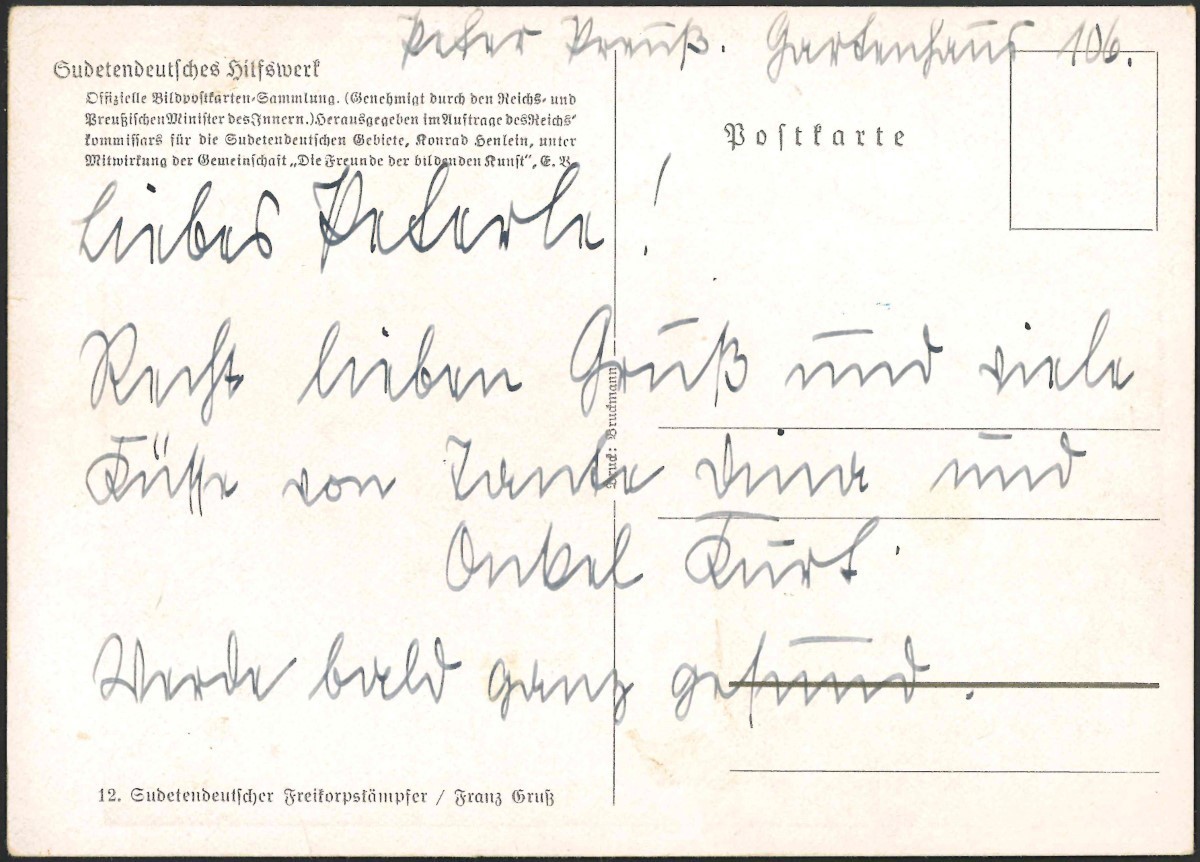 Peter Preuß. Gartenhaus 106.
Sudetendeutsches Hilfswerk
Offizielle Bildpostkarten-Sammlung. (Genehmigt durch den Reichs- und
Preußischen Minister des Innern.) Herausgegeben im Auftrage des Reichs-
kommissars für die Sudetendeutschen Gebiete, Konrad Henlein, unter
Mitwirkung der Gemeinschaft „Die Freunde der bildenden Kunst", E. V.
Postkarte
Liebes Peterle!
Recht lieben Gruß und viele
Küsse von Tante Dina und
Onkel Kurt.
Werde bald ganz gesund.
Druck: Bruckmann
12. Sudetendeutscher Freikorpskämpfer / Franz Gruß